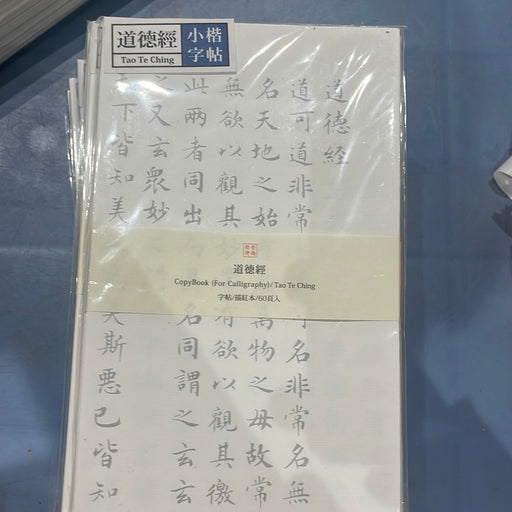 道德經
Tao Te Ching
小楷
字帖
道德經
道可道非常
可名非常名無
名天地之始
萬物之母故常
無欲以觀其妙
有欲以觀其徼
此兩者同出
名同謂之玄玄
之又玄眾妙
下皆知美
斯惡已皆知
道德經
CopyBook (For Calligraphy)/ Tao Te Ching
字帖/描紅本/60頁入